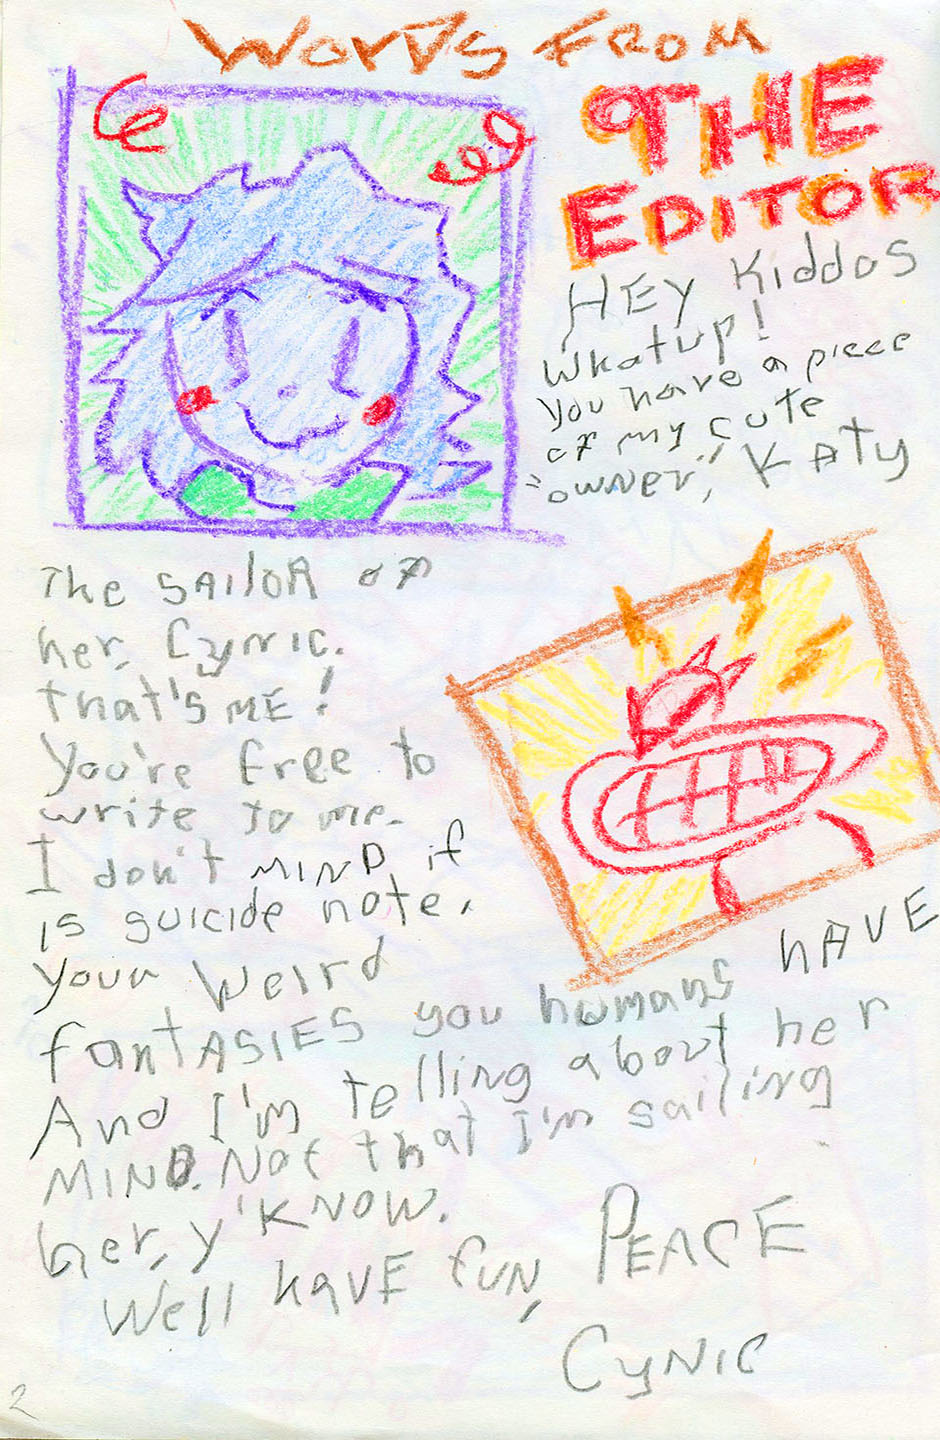 WORDS FROM
THE
EDITOR
HEY Kiddos
Whatup!
You have a piece
of my cute
"owner", KATY
The SAILOR of
her, Cynic.
that's ME!
You're free to
write to me.
I don't MIND if
is suicide note,
your weird
fantASIES you humans HAVE
And I'm telling about her
MIND. Not that I'm sailing
her, y'KNOW.
Well HAVE fUN, PEACE
CYNIC
2